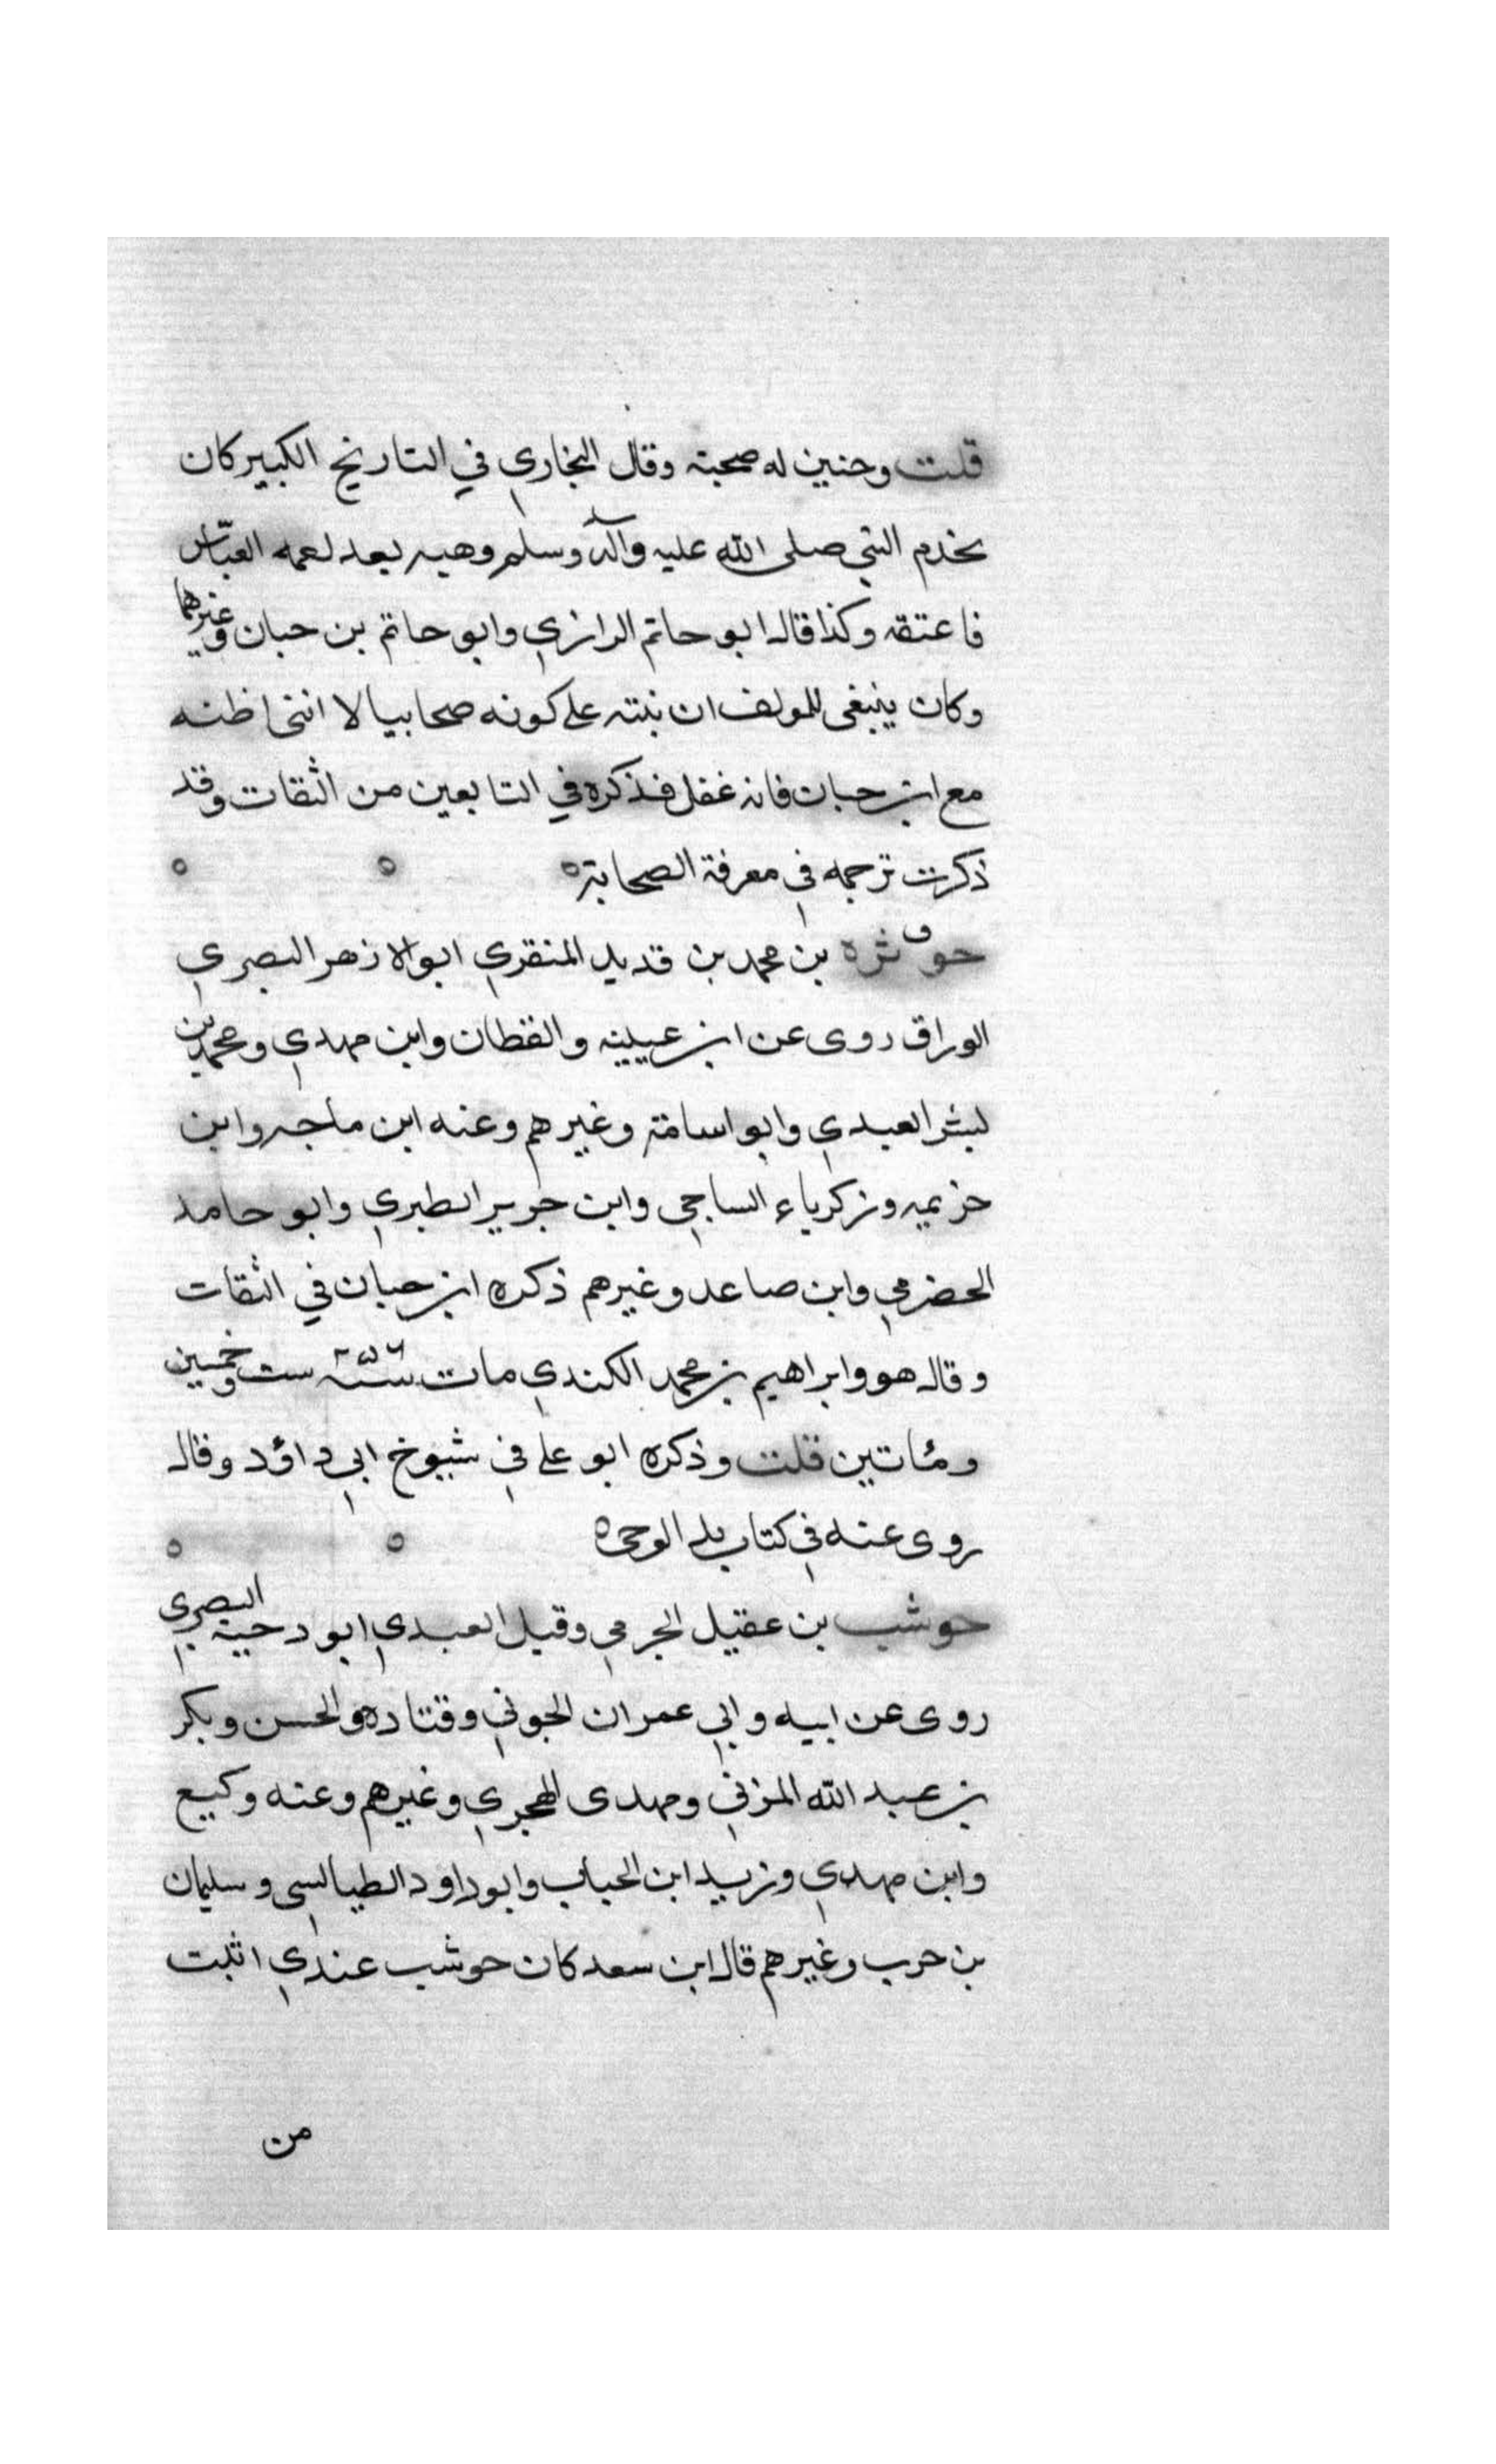 قلت وحنين له صحبة وقال البخاري في التاريخ الكبير كان
يخدم النبي صلى الله عليه وآله وسلم وهبه بعد لعمه العباس
فاعتقه وكذا قاله ابو حاتم الرازي وابو حاتم بن حبان وغيرهما
وكان ينبغي للمولف ان ينبه على كونه صحابيا لا انني اظنه
مع ابن حبان فانه غفل فذكره في التابعين من الثقات وقد
ذكرت ترجمه في معرفة الصحابة ه ه ه
ق
حوثره بن محمد بن قديد المنقري ابو الازهر البصري
الوراق روى عن ابن عيينه والقطان وابن مهدي ومحمد بن
بشر العبدي وابو اسامة وغيرهم وعنه ابن ماجه وابن
خزيمه وزكرياء الساجي وابن جرير الطبري وابو حامد
الحضرمي وابن صاعد وغيرهم ذكره ابن حبان في الثقات
وقال هو وابراهيم بن محمد الكندي مات سنة ٢٥٦ ست وخمسين
ومئاتين قلت وذكره ابو علي في شيوخ ابي داؤد وقال
روى عنه في كتاب بدء الوحي ه ه ه
حوشب بن عقيل الجرمي وقيل العبدي ابو دحية البصري
روى عن ابيه وابي عمران الجوني وقتاده والحسن وبكر
بن عبد الله المزني ومهدى الهجري وغيرهم وعنه وكيع
وابن مهدي وزيد ابن الحباب وابو داود الطيالسي وسليمان
بن حرب وغيرهم قال ابن سعد كان حوشب عندي اثبت
من